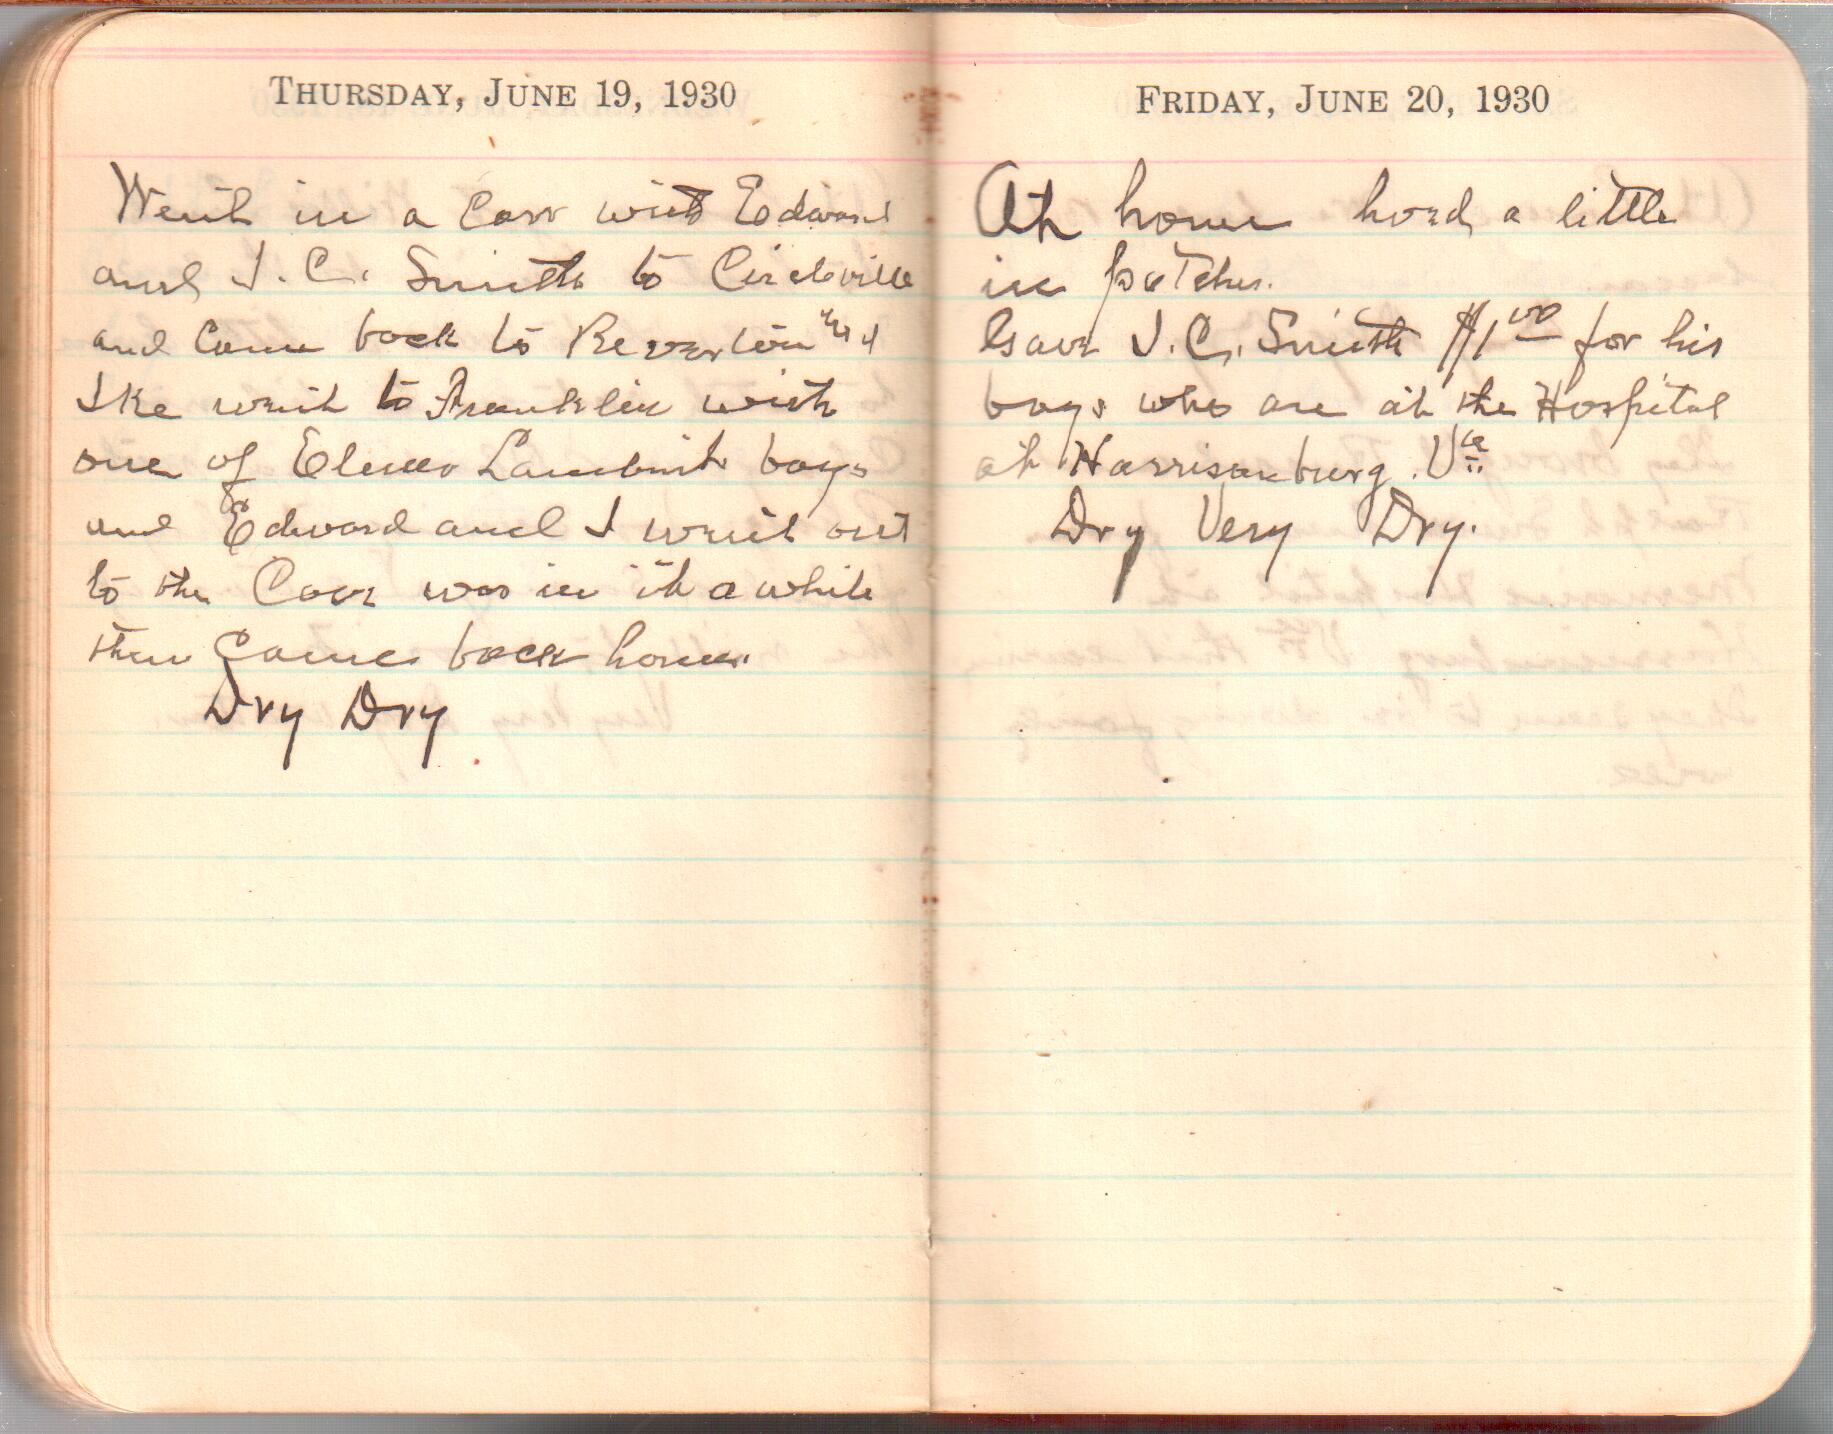 THURSDAY, JUNE 19, 1930
Went in a Carr with Edward
and I. C. Smith to Circleville
and Came back to Reverton and
Ike went to Franklin with
one of Elmer Lambert boys
and Edward and I went out
to the Cave was in it a while
then Came back home.
Dry Dry
FRIDAY, JUNE 20, 1930
At home hoed a little
in patches.
Gave I. C. Smith $1.00 for his
boys who are at the Hospital
at Harrisonburg Va
Dry Very Dry.